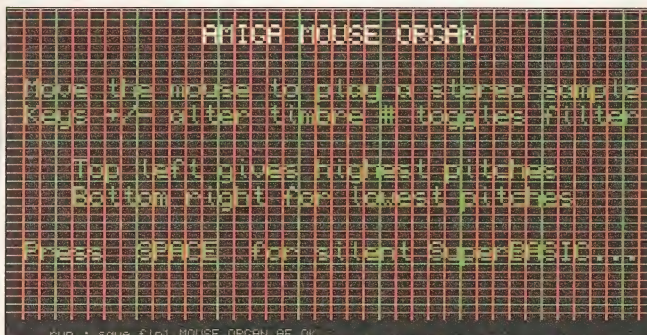 AMIGA MOUSE ORGAN
Move the mouse to play a stereo sample
Keys +/- alter timbre # toggles filter
Top left gives highest pitches
Bottom right for lowest pitches
Press SPACE for silent SuperBASIC...
run : save flp1_MOUSE_ORGAN_AF_OK